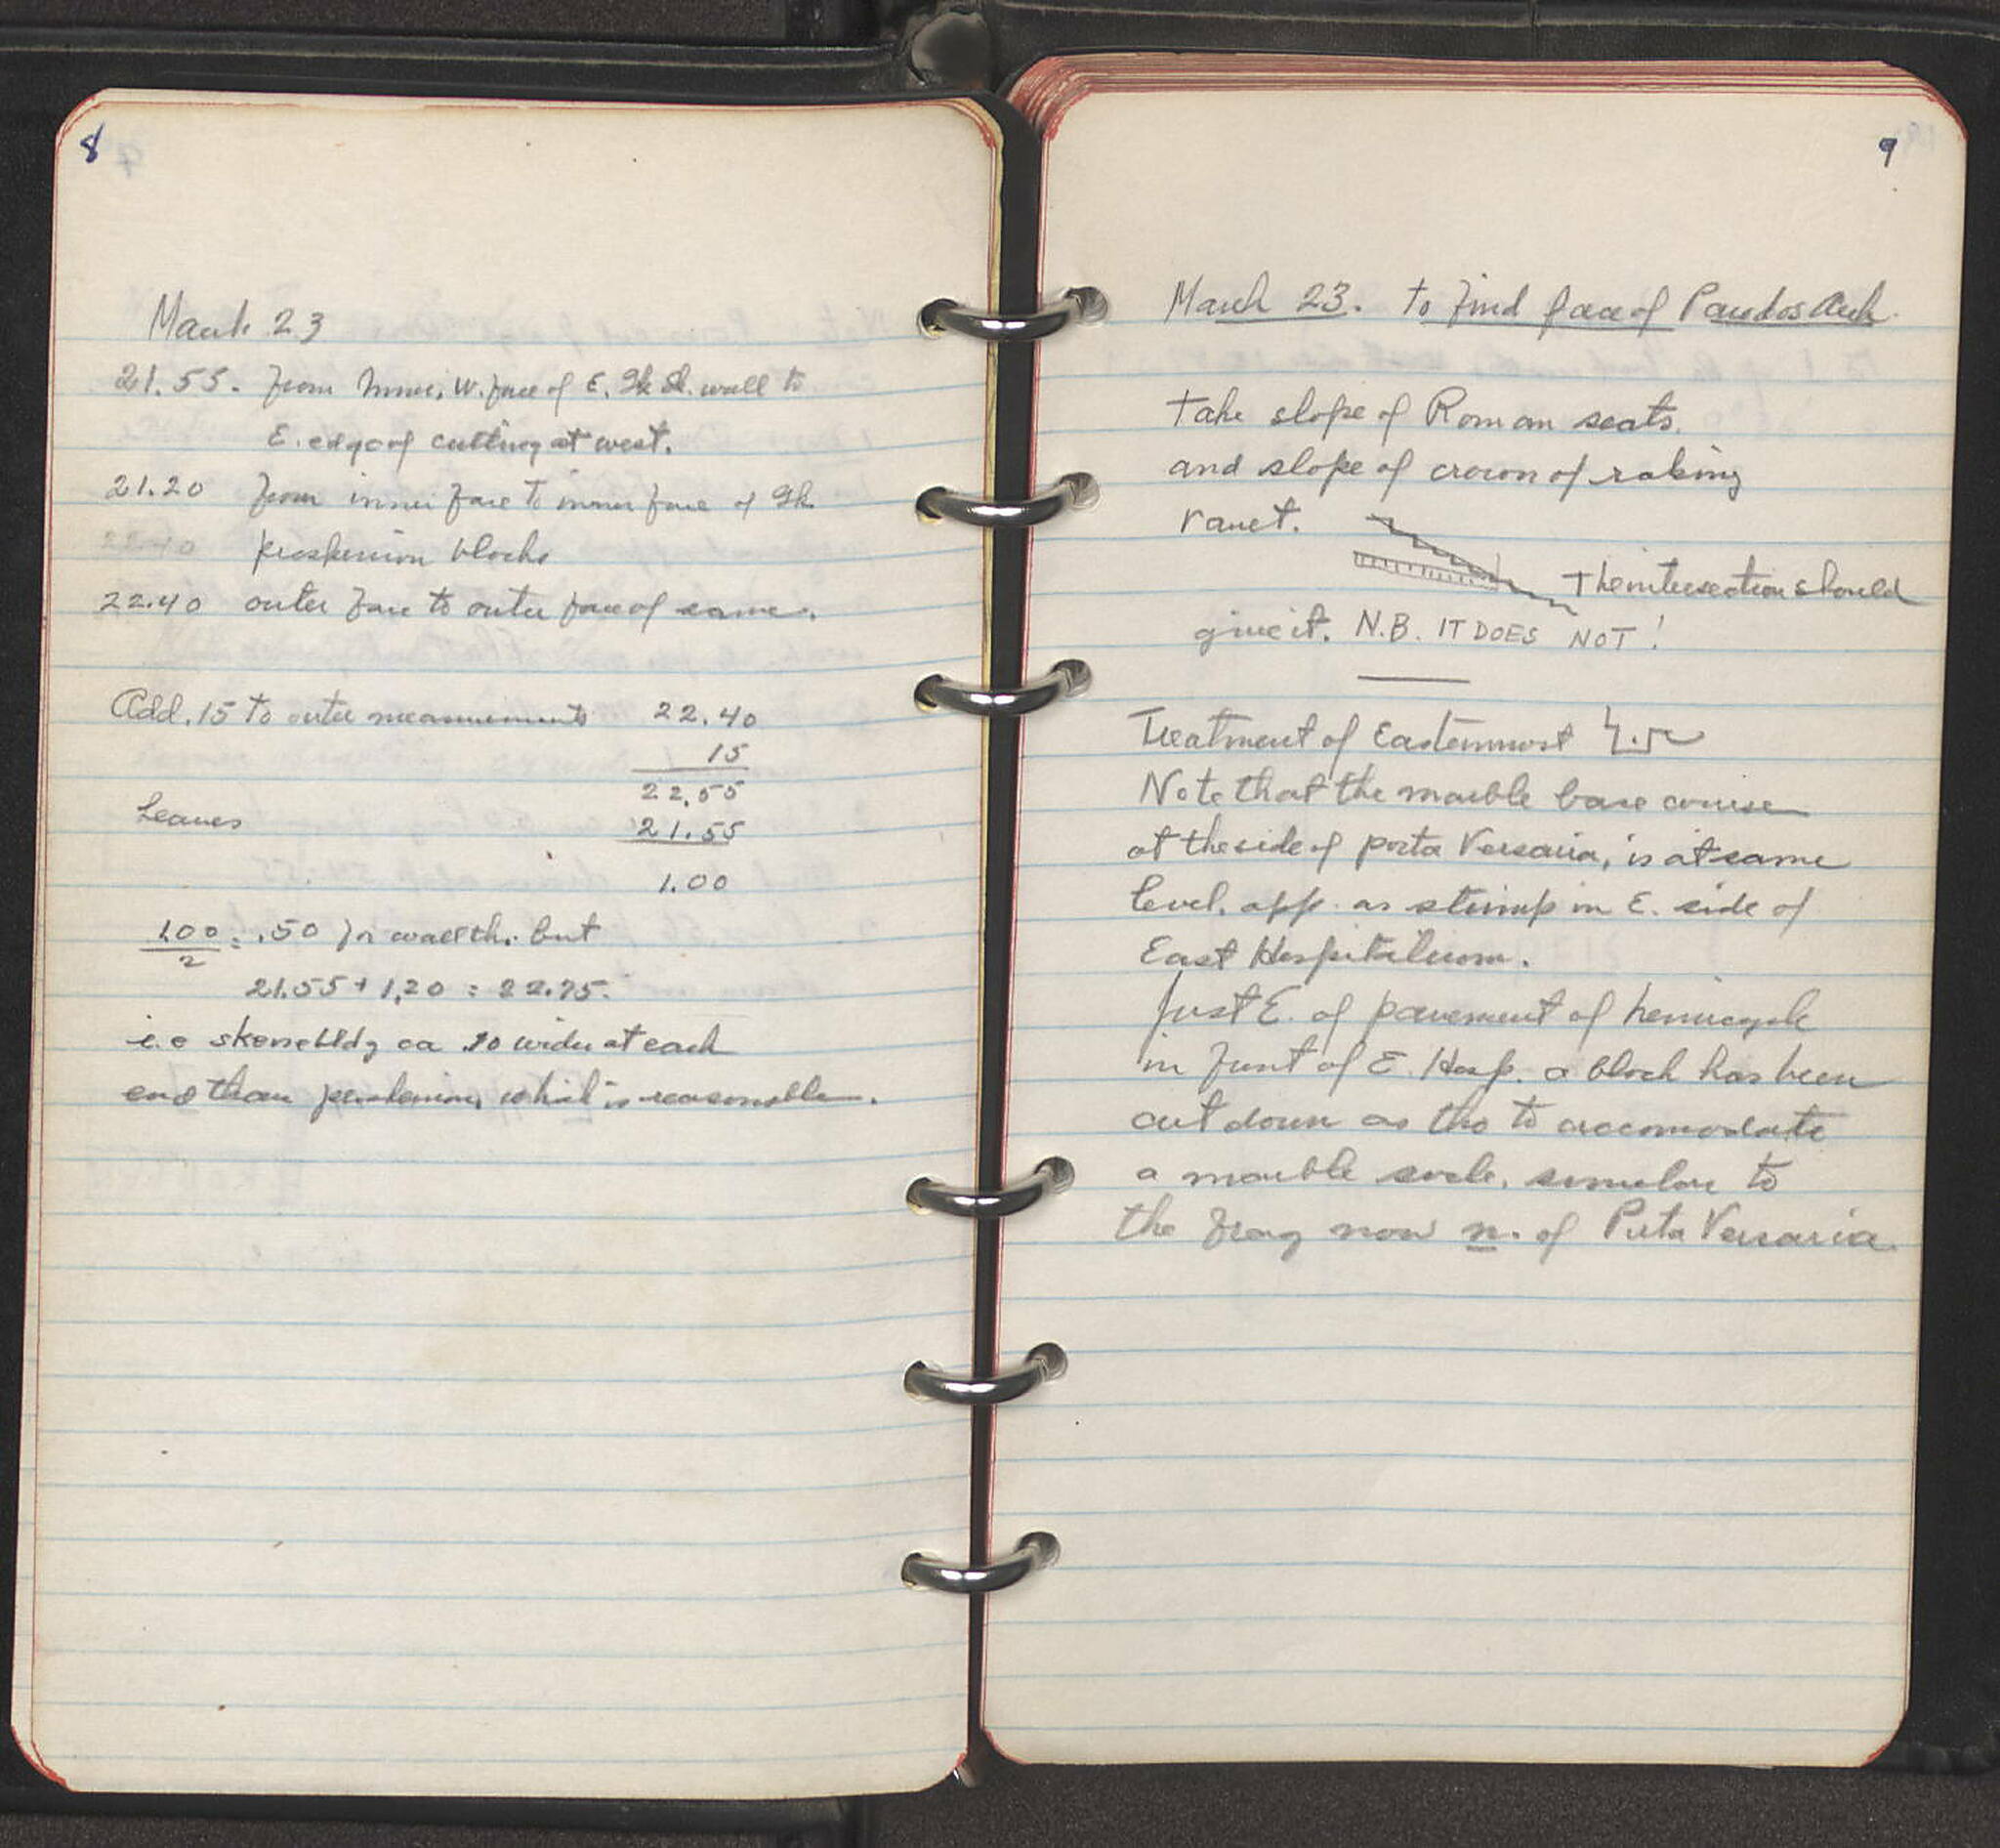 8
March 23
21.55. From inner, W. face of E. Gk Sk. wall to
E. edge of cutting at west.
21.20 from inner face to inner face of Gk
22.40 proskenion blocks
22.40 outer face to outer face of same.
Add .15 to outer measurements 22.40
15
22.55
Leaves 21.55
1.00
1.00
2 = .50 for wall th. but
21.55 + 1,20 = 22.75.
i.e skene bldg ca .10 wider at each
end than proskenion, which is reasonable.
9
March 23. to find face of Parodos Arch.
Take slope of Roman seats.
and slope of crown of raking
vault.
The intersection should
give it. N.B. IT DOES NOT!
Treatment of Easternmost
Note that the marble base course
at the side of porta Versaria, is at same
level, app. as stump in E. side of
East Hospitalium.
Just E. of pavement of hemicycle
in front of E. Hosp. a block has been
cut down as tho to accomodate
a marble socle, similar to
the frag now n. of Porta Versaria.